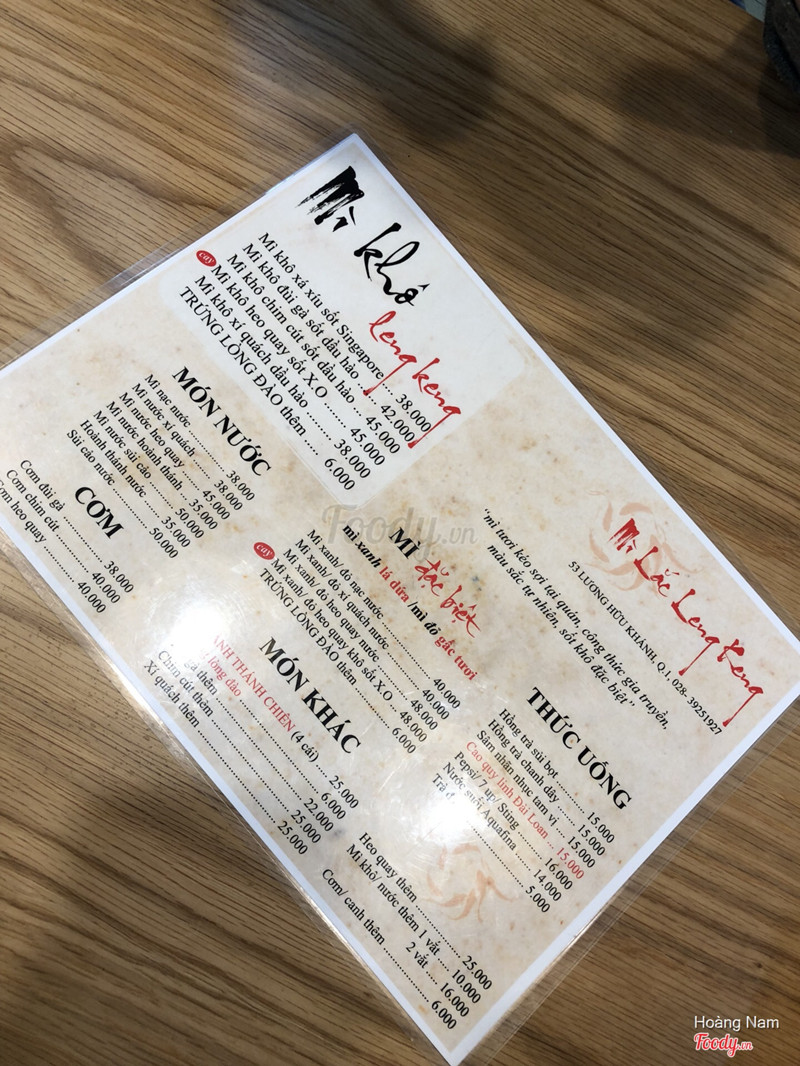 Mì khô
leng keng
Mì khô xá xíu sốt Singapore ... 38.000
Mì khô đùi gà sốt dầu hào ... 42.000
Mì khô chim cút sốt dầu hào ... 45.000
cay Mì khô heo quay sốt X.O ... 45.000
Mì khô xí quách dầu hào ... 38.000
TRỨNG LÒNG ĐÀO thêm ... 6.000
MÓN NƯỚC
Mì nạc nước ... 38.000
Mì nước xí quách ... 38.000
Mì nước heo quay ... 45.000
Mì nước hoành thánh ... 35.000
Mì nước sủi cảo ... 50.000
Hoành thánh nước ... 35.000
Sủi cảo nước ... 50.000
CƠM
Cơm đùi gà ... 38.000
Cơm chim cút ... 40.000
Cơm heo quay ... 40.000
Mì Lắc Leng Keng
53 LƯƠNG HỮU KHÁNH, Q.1, 028- 39251927
"mì tươi kéo sợi tại quán, công thức gia truyền,
màu sắc tự nhiên, sốt khô đặc biệt"
MÌ đặc biệt
mì xanh lá dứa /mì đỏ gấc tươi
Mì xanh/ đỏ nạc nước ... 40.000
Mì xanh/ đỏ xí quách nước ... 40.000
Mì xanh/ đỏ heo quay nước ... 48.000
cay Mì xanh/ đỏ heo quay khô sốt X.O ... 48.000
TRỨNG LÒNG ĐÀO thêm ... 6.000
MÓN KHÁC
THÁNH CHIÊN (4 cái) ... 25.000
lòng đào ... 6.000
gà thêm ... 22.000
Chim cút thêm ... 25.000
Xí quách thêm ... 25.000
Heo quay thêm ... 25.000
Mì khô/ nước thêm 1 vắt ... 10.000
2 vắt ... 16.000
Cơm/ canh thêm ... 6.000
THỨC UỐNG
Hồng trà sủi bọt ... 15.000
Hồng trà chanh dây ... 15.000
Sâm nhãn nhục tam vị ... 15.000
Cao quy linh Đài Loan ... 15.000
Pepsi/ 7 up/ Sting ... 16.000
Nước suối Aquafina ... 14.000
Trà ... 5.000
Foody.vn
Hoàng Nam
Foody.vn